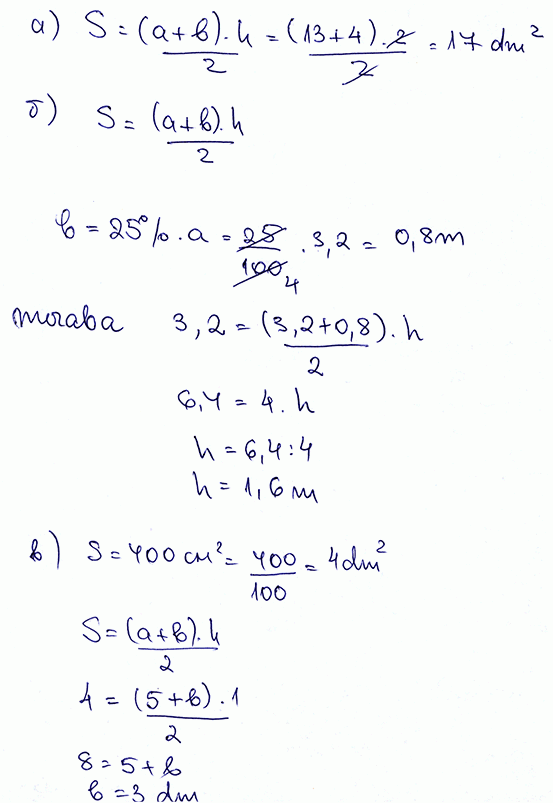 а) S = (a+b).h/2 = (13+4).2/2 = 17 dm²
б) S = (a+b).h/2
b = 25%.a = 25/100 4 . 3,2 = 0,8m
тогава 3,2 = (3,2+0,8).h/2
6,4 = 4.h
h = 6,4:4
h = 1,6 m
в) S = 400 см² = 400/100 = 4 dm²
S = (a+b).h/2
4 = (5+b).1/2
8 = 5+b
b = 3 dm